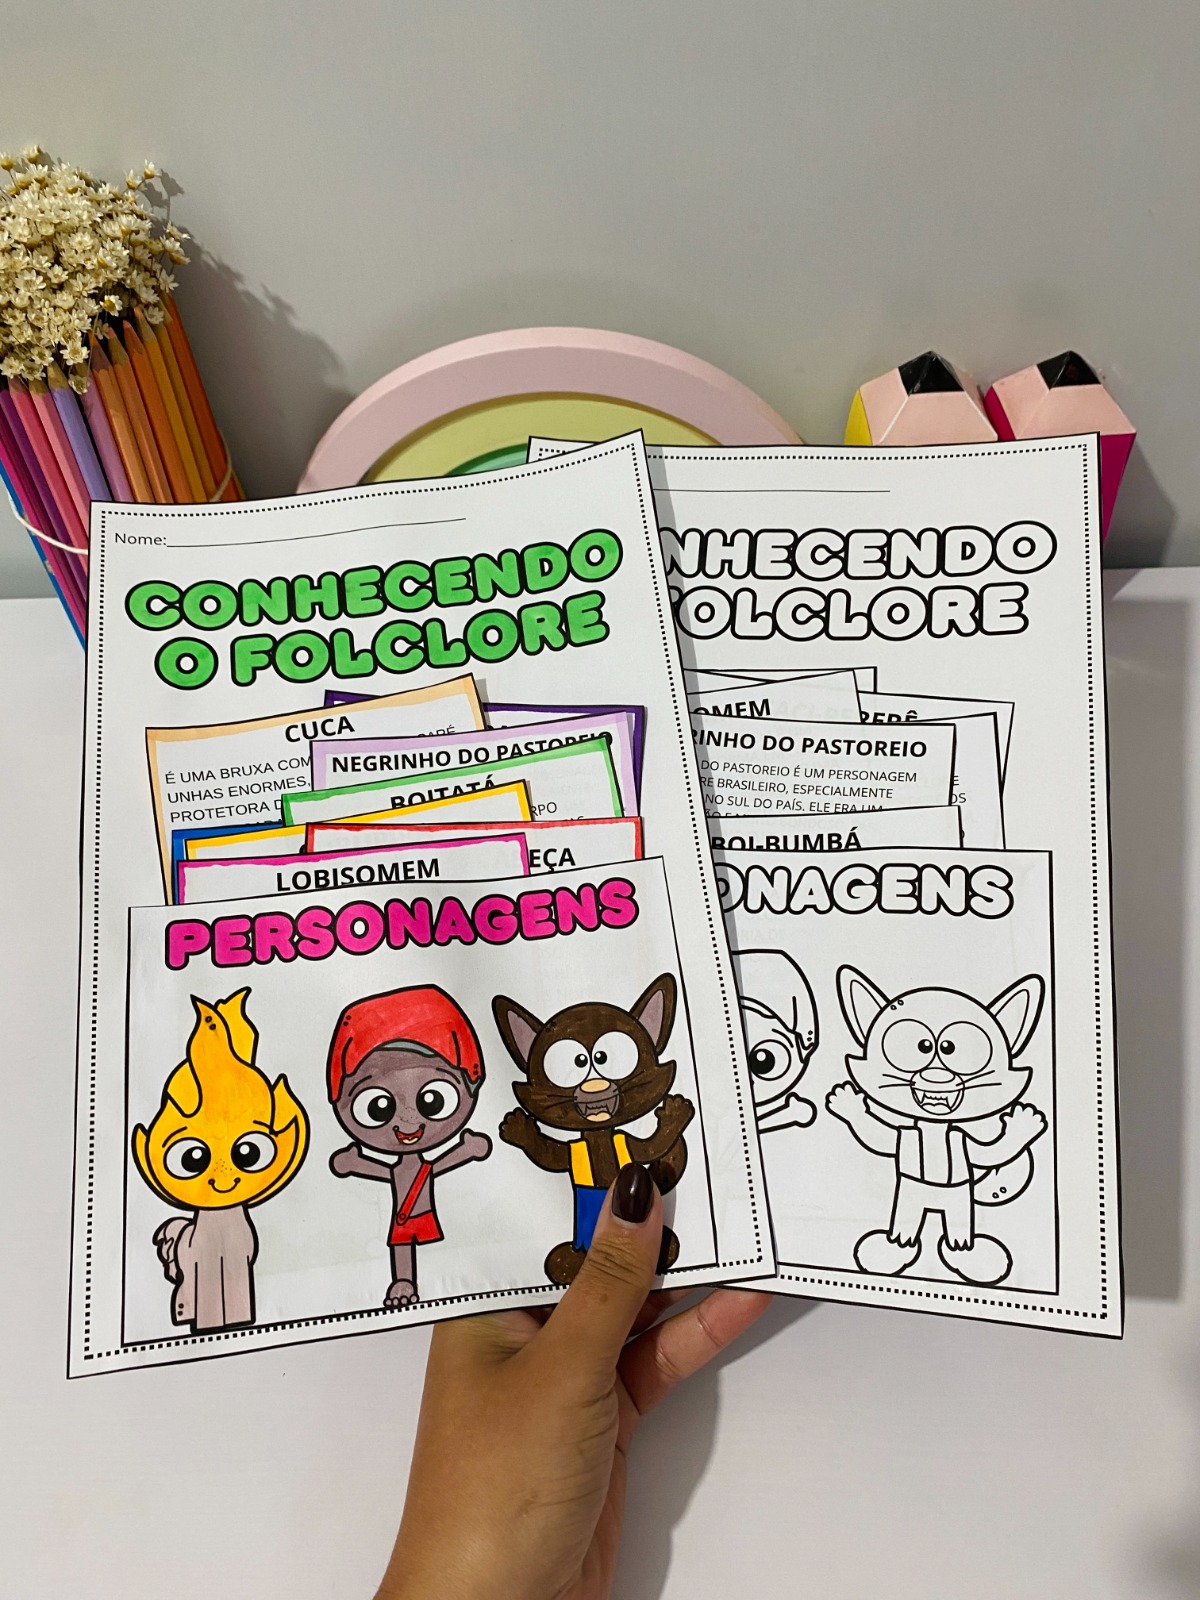 Nome:
CONHECENDO
O FOLCLORE
CUCA
É UMA BRUXA COM
UNHAS ENORMES,
PROTETORA
NEGRINHO DO PASTOREIO
BOITATÁ
RPO
EÇA
LOBISOMEM
PERSONAGENS
NHECENDO
FOLCLORE
OMEM
PERERÊ
RINHO DO PASTOREIO
DO PASTOREIO É UM PERSONAGEM
RE BRASILEIRO, ESPECIALMENTE
NO SUL DO PAÍS. ELE ERA UM
OS
BOI-BUMBÁ
ONAGENS